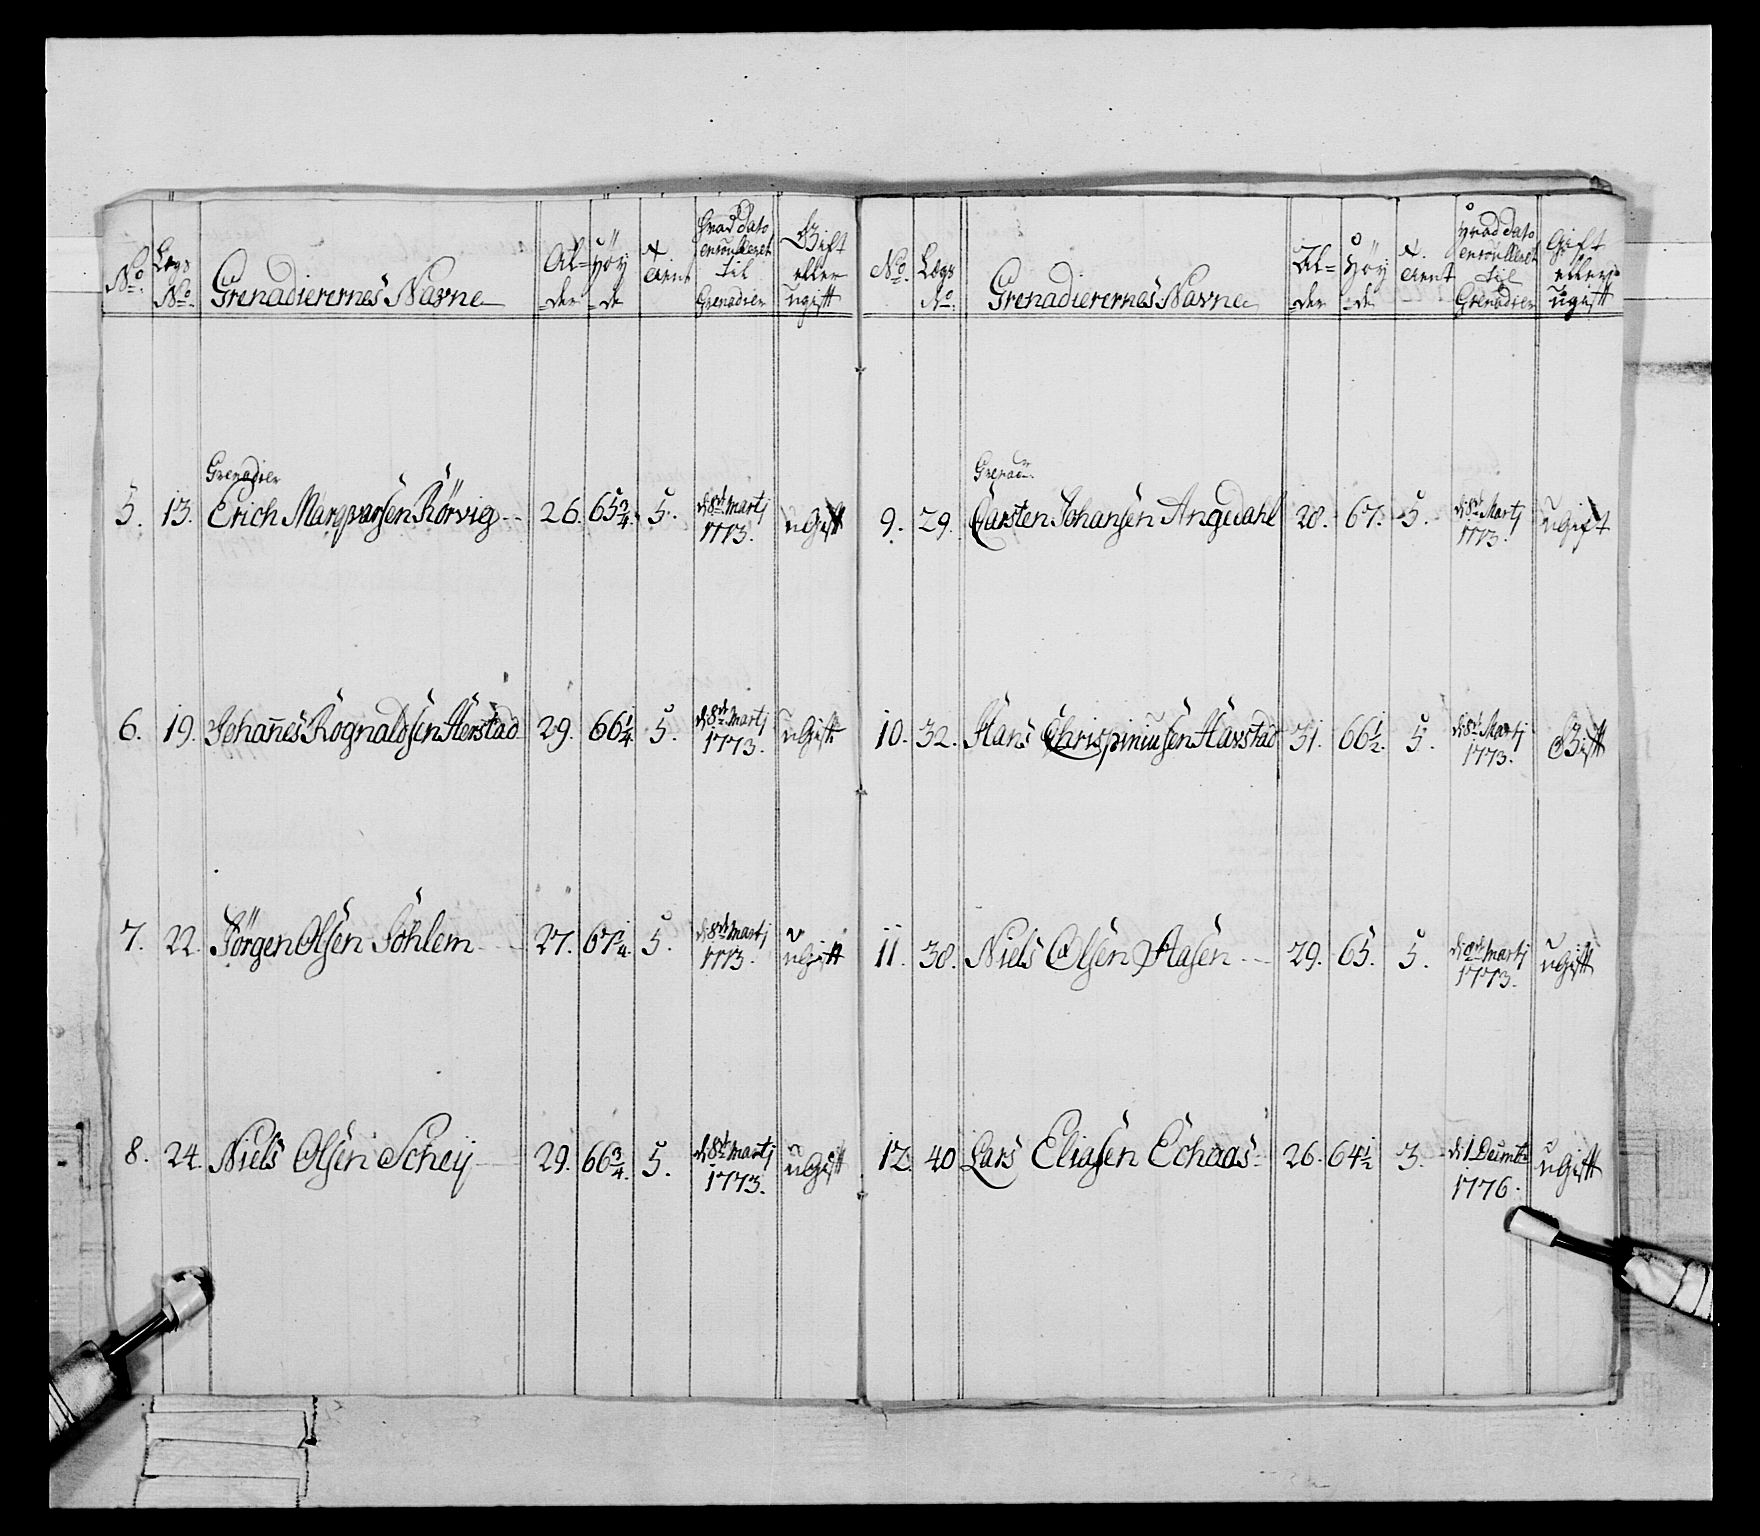 No. Lægs No. Grenaderernes Navne Al-der Höy-de Tient Hvad Dato enroulleret til Grenadier Gift eller ugift
Grenadier
5. 13. Erich Marqvarsen Rörvig 26. 65 3/4. 5. d 8de Martj 1773. ugift
6. 19. Johannes Rognaldsen Herstad 29. 66 1/4. 5. d 8de Martj 1773. ugift
7. 22. Jörgen Olsen Söhlem 27. 67 1/4. 5. d 8de Martj 1773. ugift
8. 24. Niels Olsen Schey 29. 66 3/4. 5. d 8de Martj 1773. ugift
No. Lægs No. Grenadierernes Navne Al-der Höy-de Tient Hvad dato enroulleret til Grenadier Gift eller ugift
Grenad:
9. 29. Carsten Johansen Angedahl 28. 67. 5. d 8de Martj 1773. ugift
10. 32. Hans Chrispiniusen Havstad 31. 66 1/2. 5. d 8de Martj 1773. Gift
11. 38. Niels Olsen Aasen 29. 65. 5. d 8de Martj 1773. ugift
12. 40 Lars Eliasen Echaas 26. 64 1/2 3. d 1 Decmb 1776. ugift